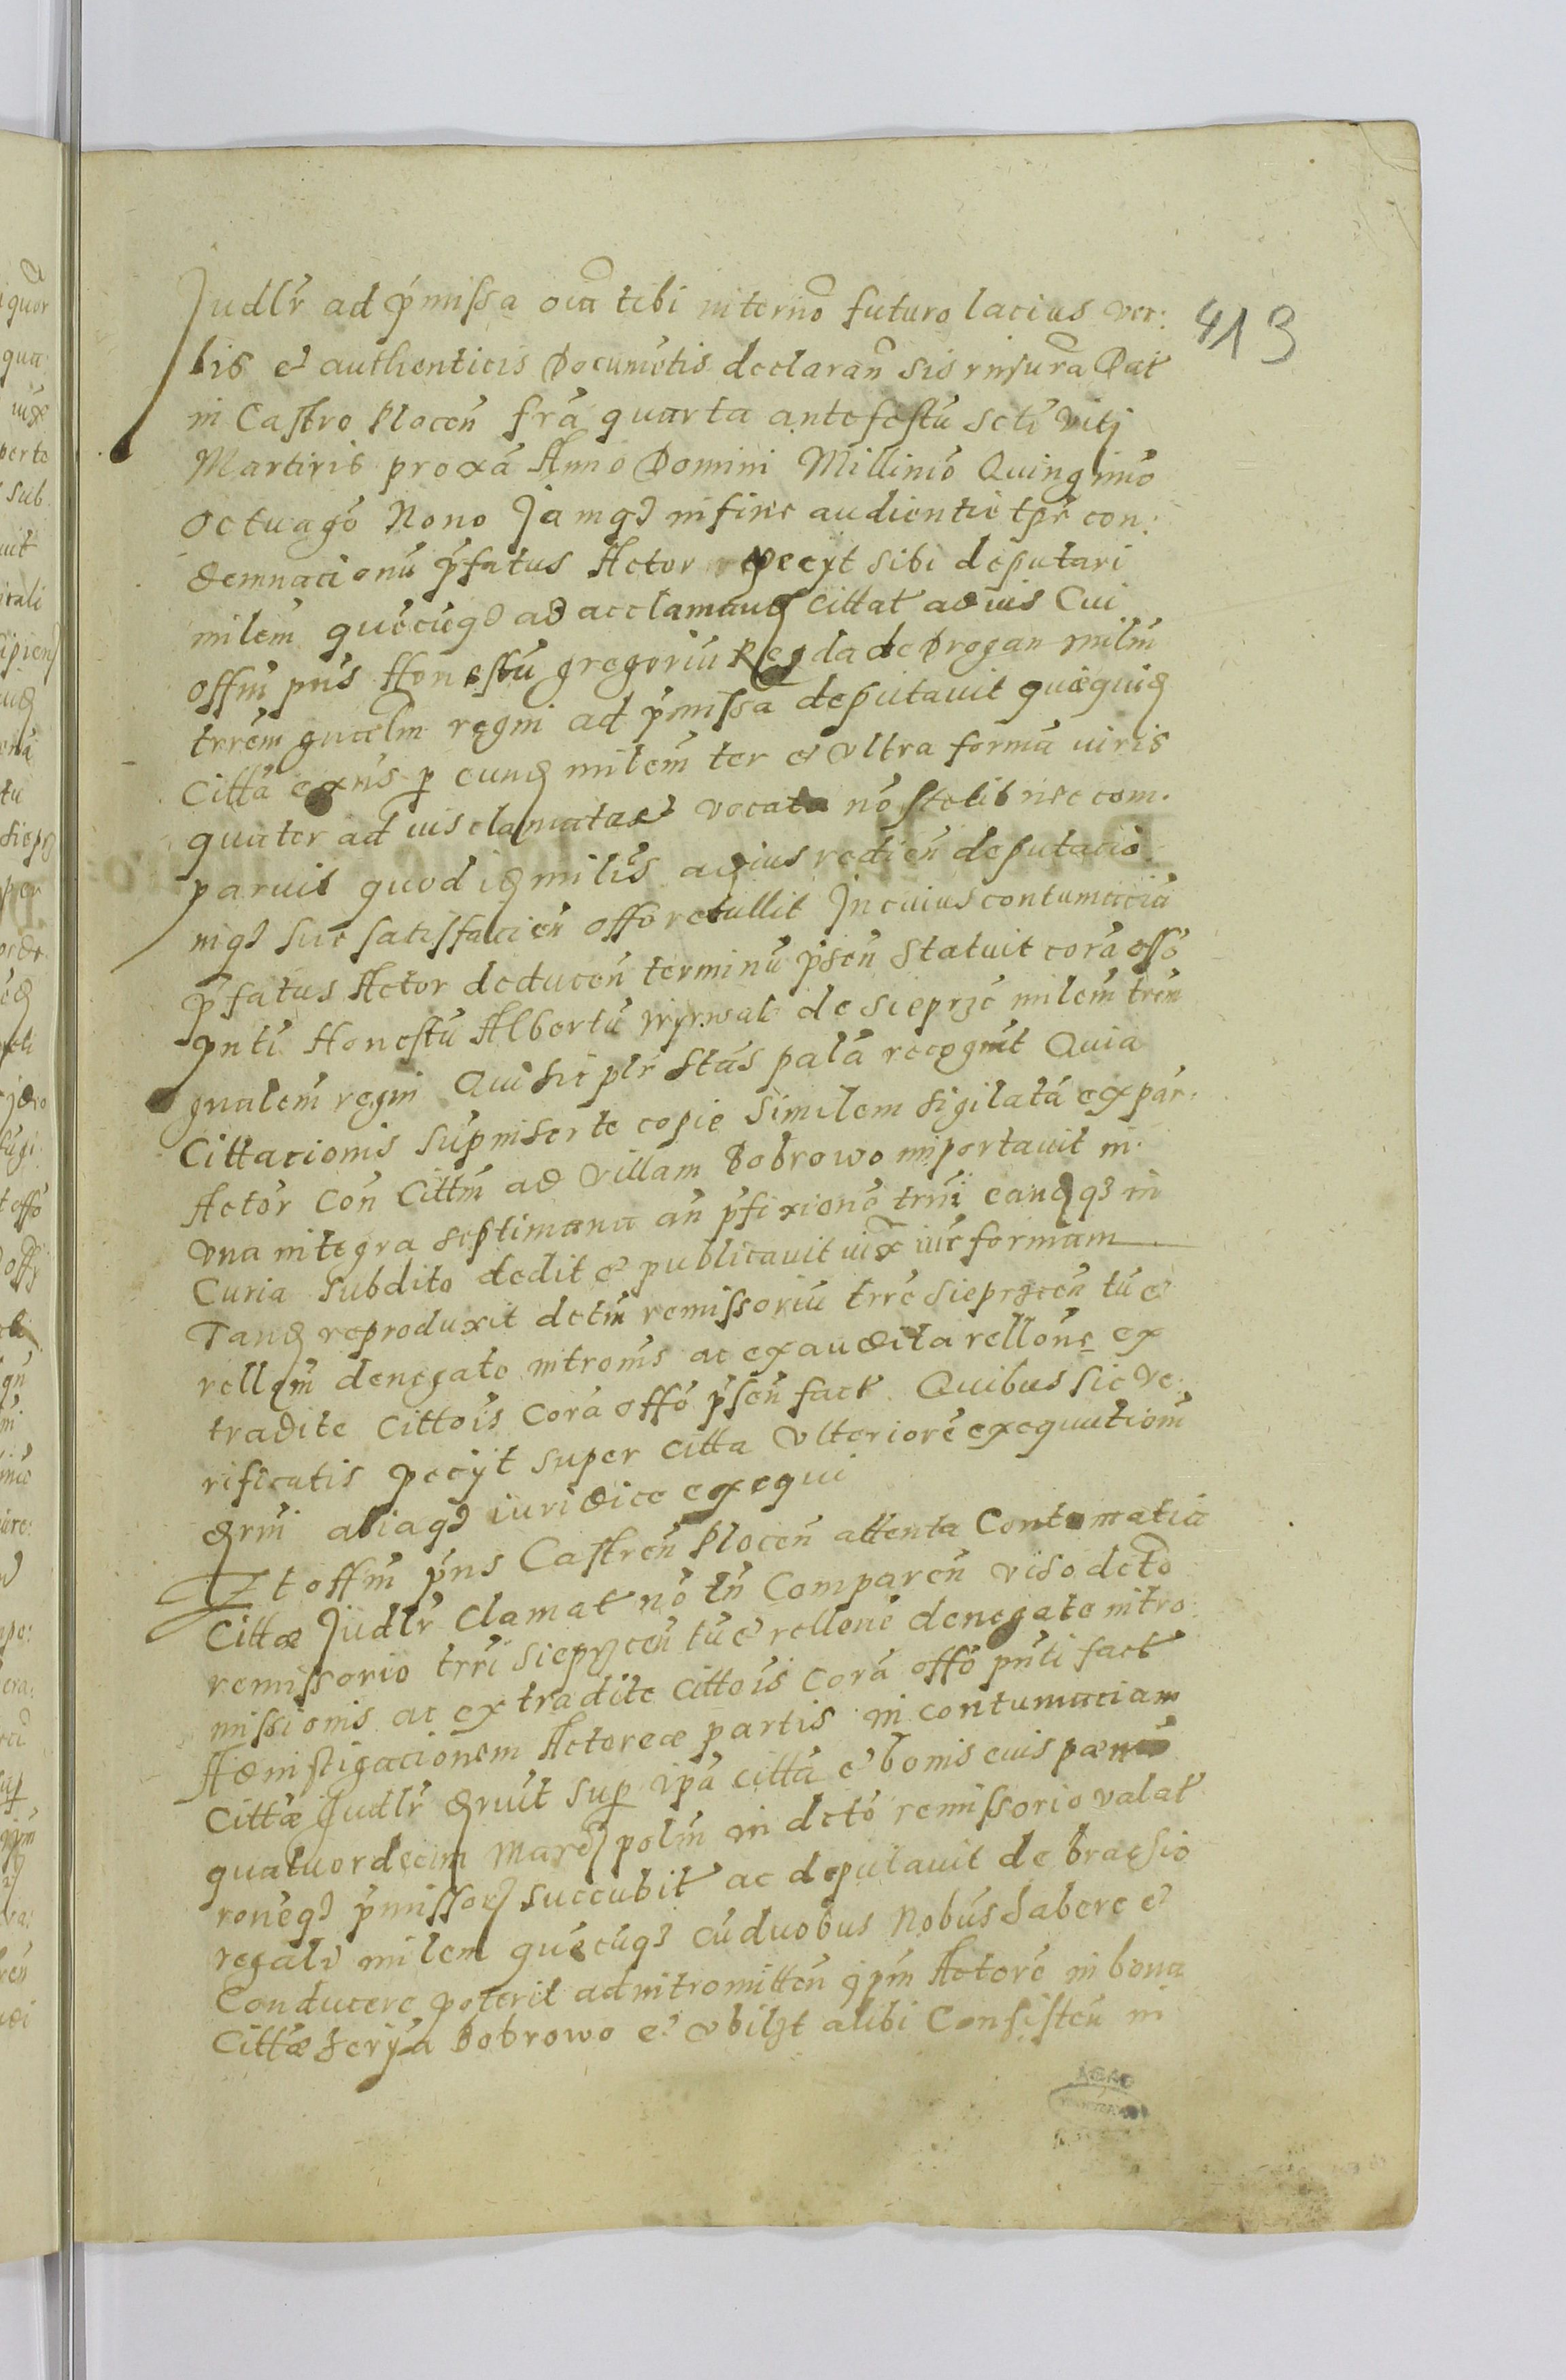 413
Judlr ad p̄missa oīa tibi in terīno futuro lacius ver:
bis et authenticis Documētis declaran̄ sis r insura Dat
in Castro Plocen̄ frā quarta ante festū Scti Viti
Martiris proxā Anno Domini Millimō Quingīmō
octuagō Nono Jamqȝ in fine audientie tp̄r con:
demnacionū p̄fatus Actor pecyt sibi deputari
milem̄ quēcūqȝ ad acclamand cittat ad ius Cui
offm̄ pn̄s Honestū gregoriū Regda de Drogan milm̄
trrem gnalm̄ regni ad p̄missa deputavit quæquid
Cittā exn̄s p eund milem̄ ter et ultra formā iuris
quater ad ius clamata et vocata nō stetit nec com.
paruit quod id milēs ad ius redien̄ deputacio
niqȝ sue satisfacien̄ offō retullit In cuius contumaciā
p̄fatus Actor deducen̄ terminū p̄sen̄ statuit corā offō
pn̄ti Honestū Albertū Wyrwal de Sieprze milem̄ trēm
gnalem̄ regni Qui hic plr̄ stās palā recognit Quia
Cittacionis sup inserte copie similem sigilatā ex par.
Actor̄ Con̄ Cittm̄ ad villam Bobrowo importavit in
una integra septimana an̄ p̄fixionē trm̄i eandqȝ in
Curia subdito dedit et publicavit iux iur̄ formam
Tand reproduxit dctm̄ remissoriū trre Sieprcen̄ tū et
rellom̄ denegate introm̄s ac exaudita rellone ex
tradite cittōis corā offō p̄sen̄ fact. Quibus sic ve.
rificatis pecÿt super citta ulteriorē exequutiom̄
drm̄i aliaqȝ iuridice exequi
Et offm̄ pn̄s Castren̄ Plocen̄ attenta Contumatia
Cittæ Judlr̄ clamat nō tn̄ Comparen̄ viso dcto
remissorio trri Sieprcen̄ tū et rellone denegate intro
missionis ac extradite cittōis corā offō pn̄ti fact
Ad instigacionem Actoreæ partis in contumaciam
Cittæ Judlr̄ druit sup ipā cittā et bonis eius pænas
quatuordecim Marc polm̄ in dcto remissorio valat
ronēqȝ p̄missor succubit ac deputavit de brachio
regali milem quēcūqȝ cū duobus Nobus habere et
Conducere poterit ad intromitten̄ ipm̄ Actorē in bona
Cittæ Bobrowo et ubilȝt alibi Consisten̄ in